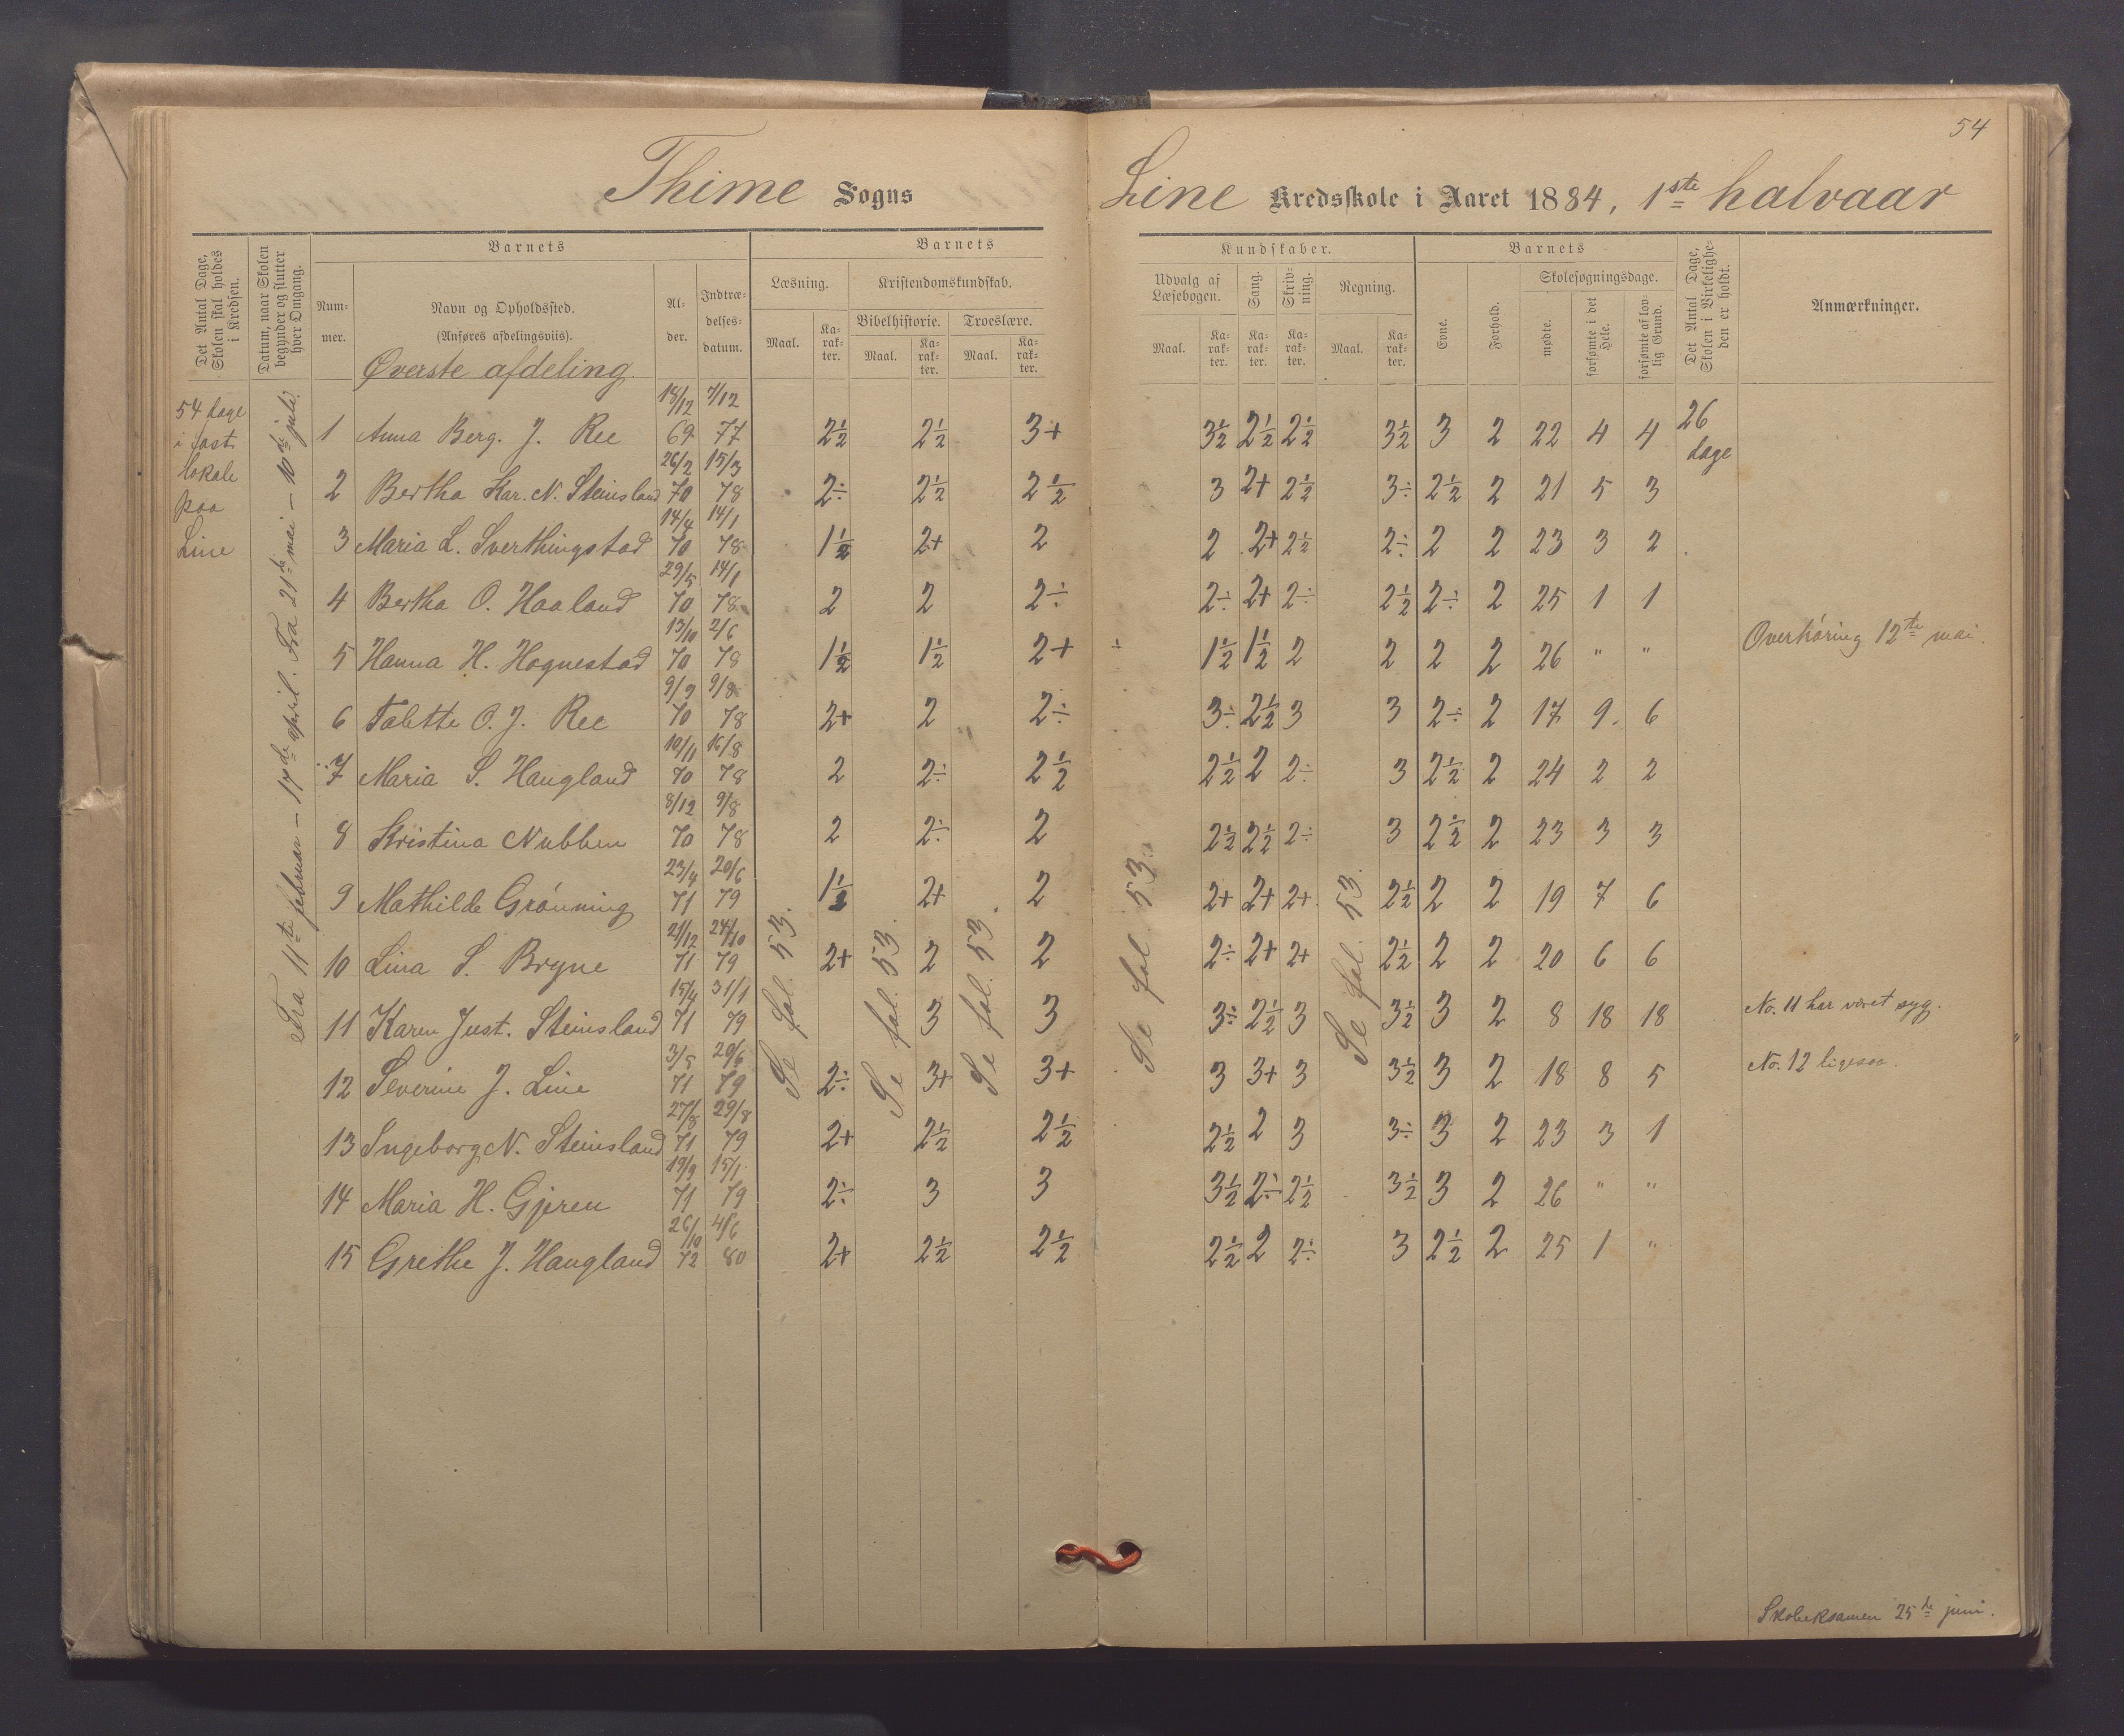 54
Thime Sogns
Line Kredsskole i Aaret 1884, 1ste halvaar
Det Antal Dage, Skolen skal holdes i Kredsen.
Datum, naar Skolen begynder og slutter hver Omgang.
Barnets
Nummer.
Navn og Opholdssted.
(Anføres afdelingsviis).
Øverste afdeling
Alder.
Indtrædelsesdatum.
Barnets
Læsning.
Maal.
Karakter.
Kristendomskundskab.
Bibelhistorie.
Maal.
Karakter.
Troeslære.
Maal.
Karakter.
Kundskaber.
Udvalg af Læsebogen.
Maal.
Karakter.
Sang.
Karakter.
Skrivning.
Karakter.
Regning.
Maal.
Karakter.
Barnets
Evne.
Forhold.
Skolesøgningsdage.
mødte.
forsømte i det Hele.
forsømte af lovlig Grund.
Det Antal Dage, Skolen i Virkeligheden er holdt.
Anmærkninger.
54 dage
i fast
lokale
paa
Line
Fra 11te februar – 17de april. Fra 21de mai – 10de juli.
1 Anna Berg. J. Ree 18/12 69 7/12 77 2½ 2½ 3+ 3½ 2½ 2½ 3½ 3 2 22 4 4 26 dage
2 Bertha Kar. N. Steinsland 26/2 70 15/3 78 2÷ 2½ 2½ 3 2+ 2½ 3÷ 2½ 2 21 5 3
3 Maria L. Sverthingstad 14/4 70 14/1 78 1½ 2+ 2 2 2+ 2½ 2÷ 2 2 23 3 2
4 Bertha O. Haaland 29/5 70 14/1 78 2 2 2÷ 2÷ 2+ 2÷ 2½ 2÷ 2 25 1 1
5 Hanna H. Hognestad 13/10 70 2/6 78 1½ 1½ 2+ 1½ 1½ 2 2 2 2 26 " " Overhøring 12te mai.
6 Talette O. J. Ree 9/9 70 9/8 78 2+ 2 2÷ 3÷ 2½ 3 3 2÷ 2 17 9 6
7 Maria S. Haugland 10/11 70 16/8 78 2 2÷ 2½ 2½ 2 2÷ 3 2½ 2 24 2 2
8 Kristina Nubben 8/12 70 9/8 78 2 2÷ 2 2½ 2½ 2÷ 3 2½ 2 23 3 3
9 Mathilde Grønning 23/4 71 20/6 79 1½ 2+ 2 2+ 2+ 2+ 2½ 2 2 19 7 6
10 Lina S. Bryne 21/12 71 24/10 79 2+ 2 2 2÷ 2+ 2+ 2½ 2 2 20 6 6
11 Karen Just. Steinsland 15/4 71 31/1 79 3 3 3÷ 2½ 3 3½ 3 2 8 18 18 No. 11 har været syg.
12 Severine J. Line 3/5 71 20/6 79 2÷ 3+ 3+ 3 3+ 3 3½ 3 2 18 8 5 No. 12 ligesaa.
13 Ingeborg N. Steinsland 27/8 71 29/8 79 2+ 2½ 2½ 2½ 2 3 3÷ 3 2 23 3 1
14 Maria H. Gjeren 19/9 71 15/1 79 2÷ 3 3 3½ 2÷ 2½ 3½ 3 2 26 " "
15 Grethe J. Haugland 26/10 72 4/6 80 2+ 2½ 2½ 2½ 2 2÷ 3 2½ 2 25 1 "
Se fol. 53.
Se fol. 53.
Se fol. 53.
Se fol. 53.
Se fol. 53.
Skoleeksamen 25de juni.